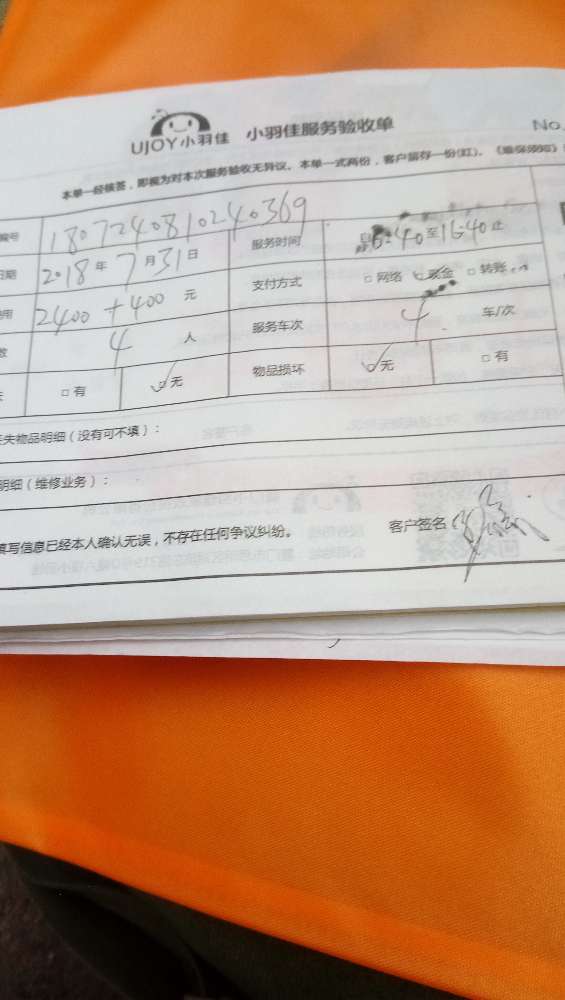 UJOY小羽佳 小羽佳服务验收单
No.
本单一经核签,即视为对本次服务验收无异议。本单一式两份,客户留存一份(红)。《维保须知》
编号 1807240810240369 服务时间 至16:40止
日期 2018年7月31日 支付方式 □网络 ☑现金 □转账
用 2400+400 元 服务车次 4 车/次
数 4 人
□有 ☑无 物品损坏 ☑无 □有
失物品明细(没有可不填):
明细(维修业务):
填写信息已经本人确认无误,不存在任何争议纠纷。 客户签名